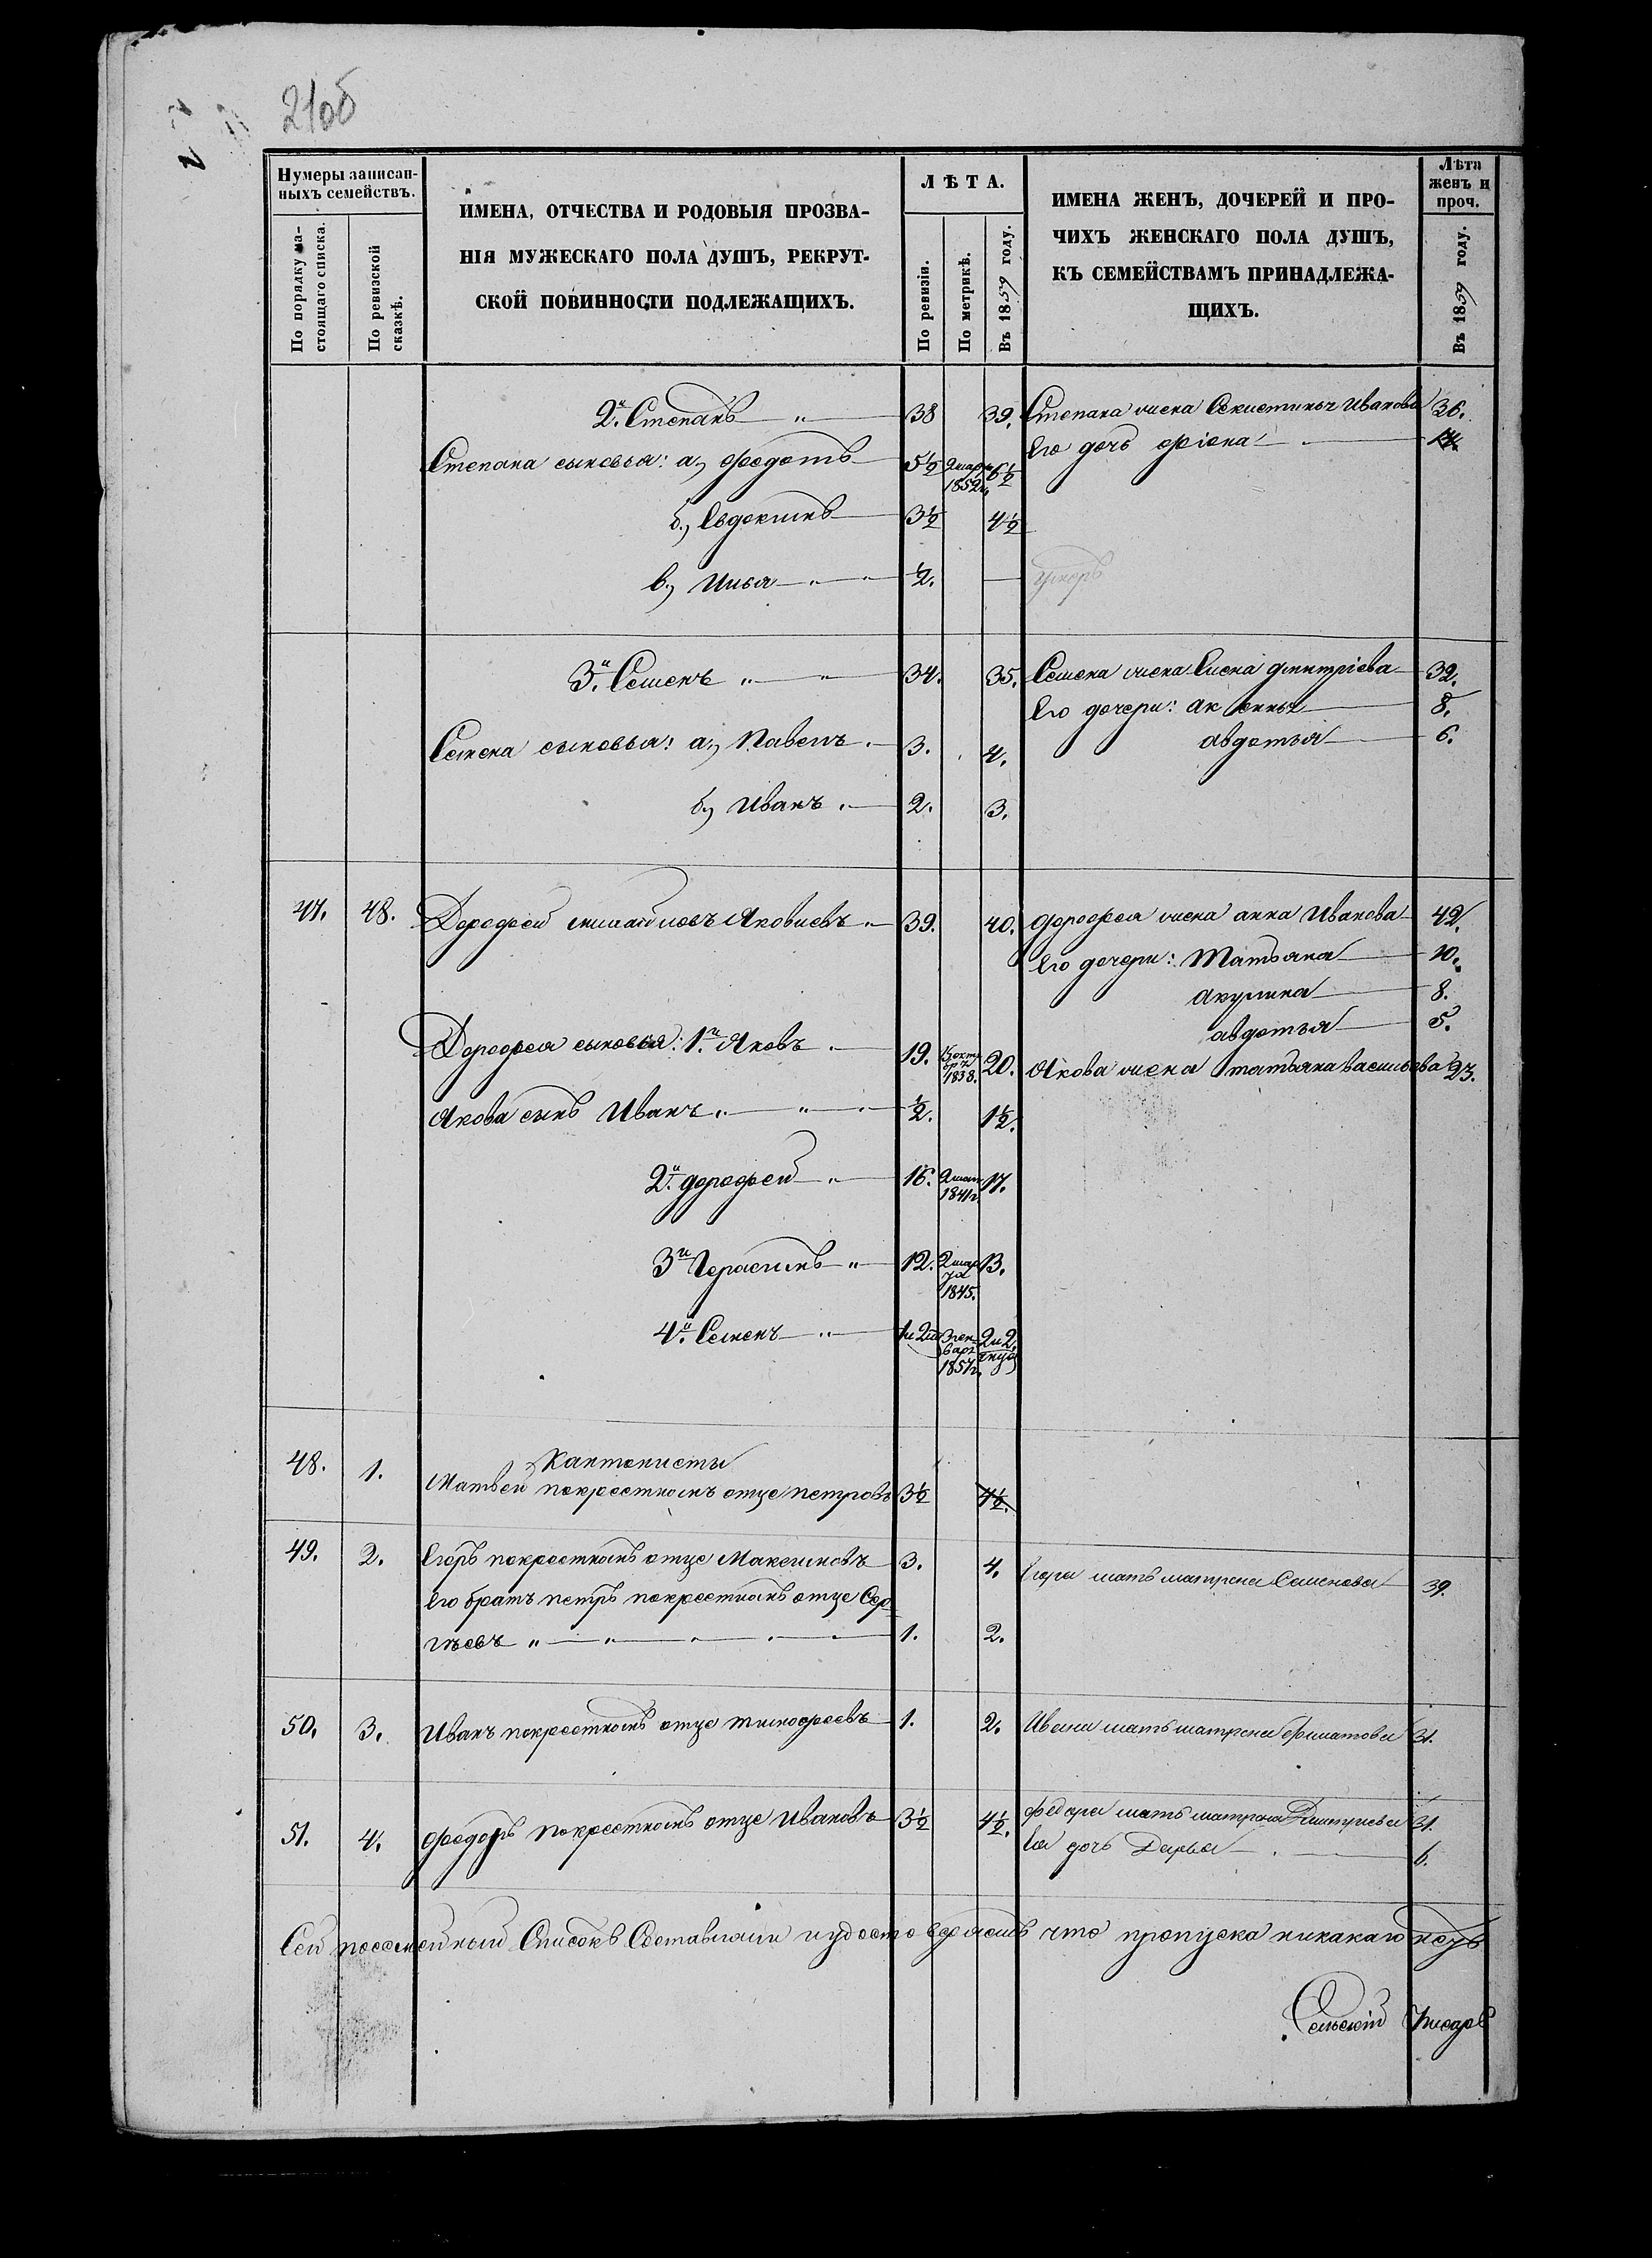 21об
Нумеры записан-
ныхъ семействъ.
По порядку на-
стоящаго списка.
По ревизской
сказкѣ.
ИМЕНА, ОТЧЕСТВА И РОДОВЫЯ ПРОЗВА-
НІЯ МУЖЕСКАГО ПОЛА ДУШЪ, РЕКРУТ-
СКОЙ ПОВИННОСТИ ПОДЛЕЖАЩИХЪ.
ЛѢТА.
По ревизіи.
По метрикѣ.
Въ 1859 году.
ИМЕНА ЖЕНЪ, ДОЧЕРЕЙ И ПРО-
ЧИХЪ ЖЕНСКАГО ПОЛА ДУШЪ,
КЪ СЕМЕЙСТВАМЪ ПРИНАДЛЕЖА-
ЩИХЪ.
Лѣта
женъ и
проч.
Въ 1859 году.
2й. Степанъ " 38 39. Степана жена Иванова 36.
Его дочь Фіона
Степана сыновья: а) Федотъ 5½ 2 мар 1852 г. 6½
б) Евдокимъ 3½ 4½
в) Илья ½. — умеръ
3й. Семенъ " 34. 35. Семена жена Елена Дмитріева 32.
Его дочери: Аксинья 8.
Авдотья 6.
Семена сыновья: а) Павелъ 3. 4.
б) Иванъ 2. 3.
47. 48. Дорофей Яковлевъ 39. 40. Дорофея жена Анна Иванова 42.
Его дочери: Татьяна 10.
Акулина 8.
Авдотья 5.
Дорофея сыновья: 1й. Яковъ 19. окт 1838. 20. Якова жена Татьяна Васильева 23.
Якова сынъ Иванъ ½. 1½.
2й. Дорофей 16. 1841 г. 17.
3й Герасимъ 12. 2 мар та 1845. 13.
4й. Семенъ 1 и 2 3 ген варя 1857 г. 2 и 2
Кантонисты
48. 1. Матвей покрестномъ отце Петровъ 3½ 4½.
49. 2. Егоръ покрестномъ отце Максимовъ 3. 4. Егора мать Матрена Семенова 39.
Его братъ Петръ покрестномъ отце Сер
гѣевъ " 1. 2.
50. 3. Иванъ покрестномъ отце Тимофеевъ 1. 2. Ивана мать Матрена Филатова 31.
51. 4. Федоръ покрестномъ отце Ивановъ 3½ 4½. Федора мать Матрена Дмитриева 31.
Ея дочь Дарья 6.
Сей посемейный Списокъ Составляли и удостоверяемъ что пропуска никакаго нетъ
Сельский Писарь